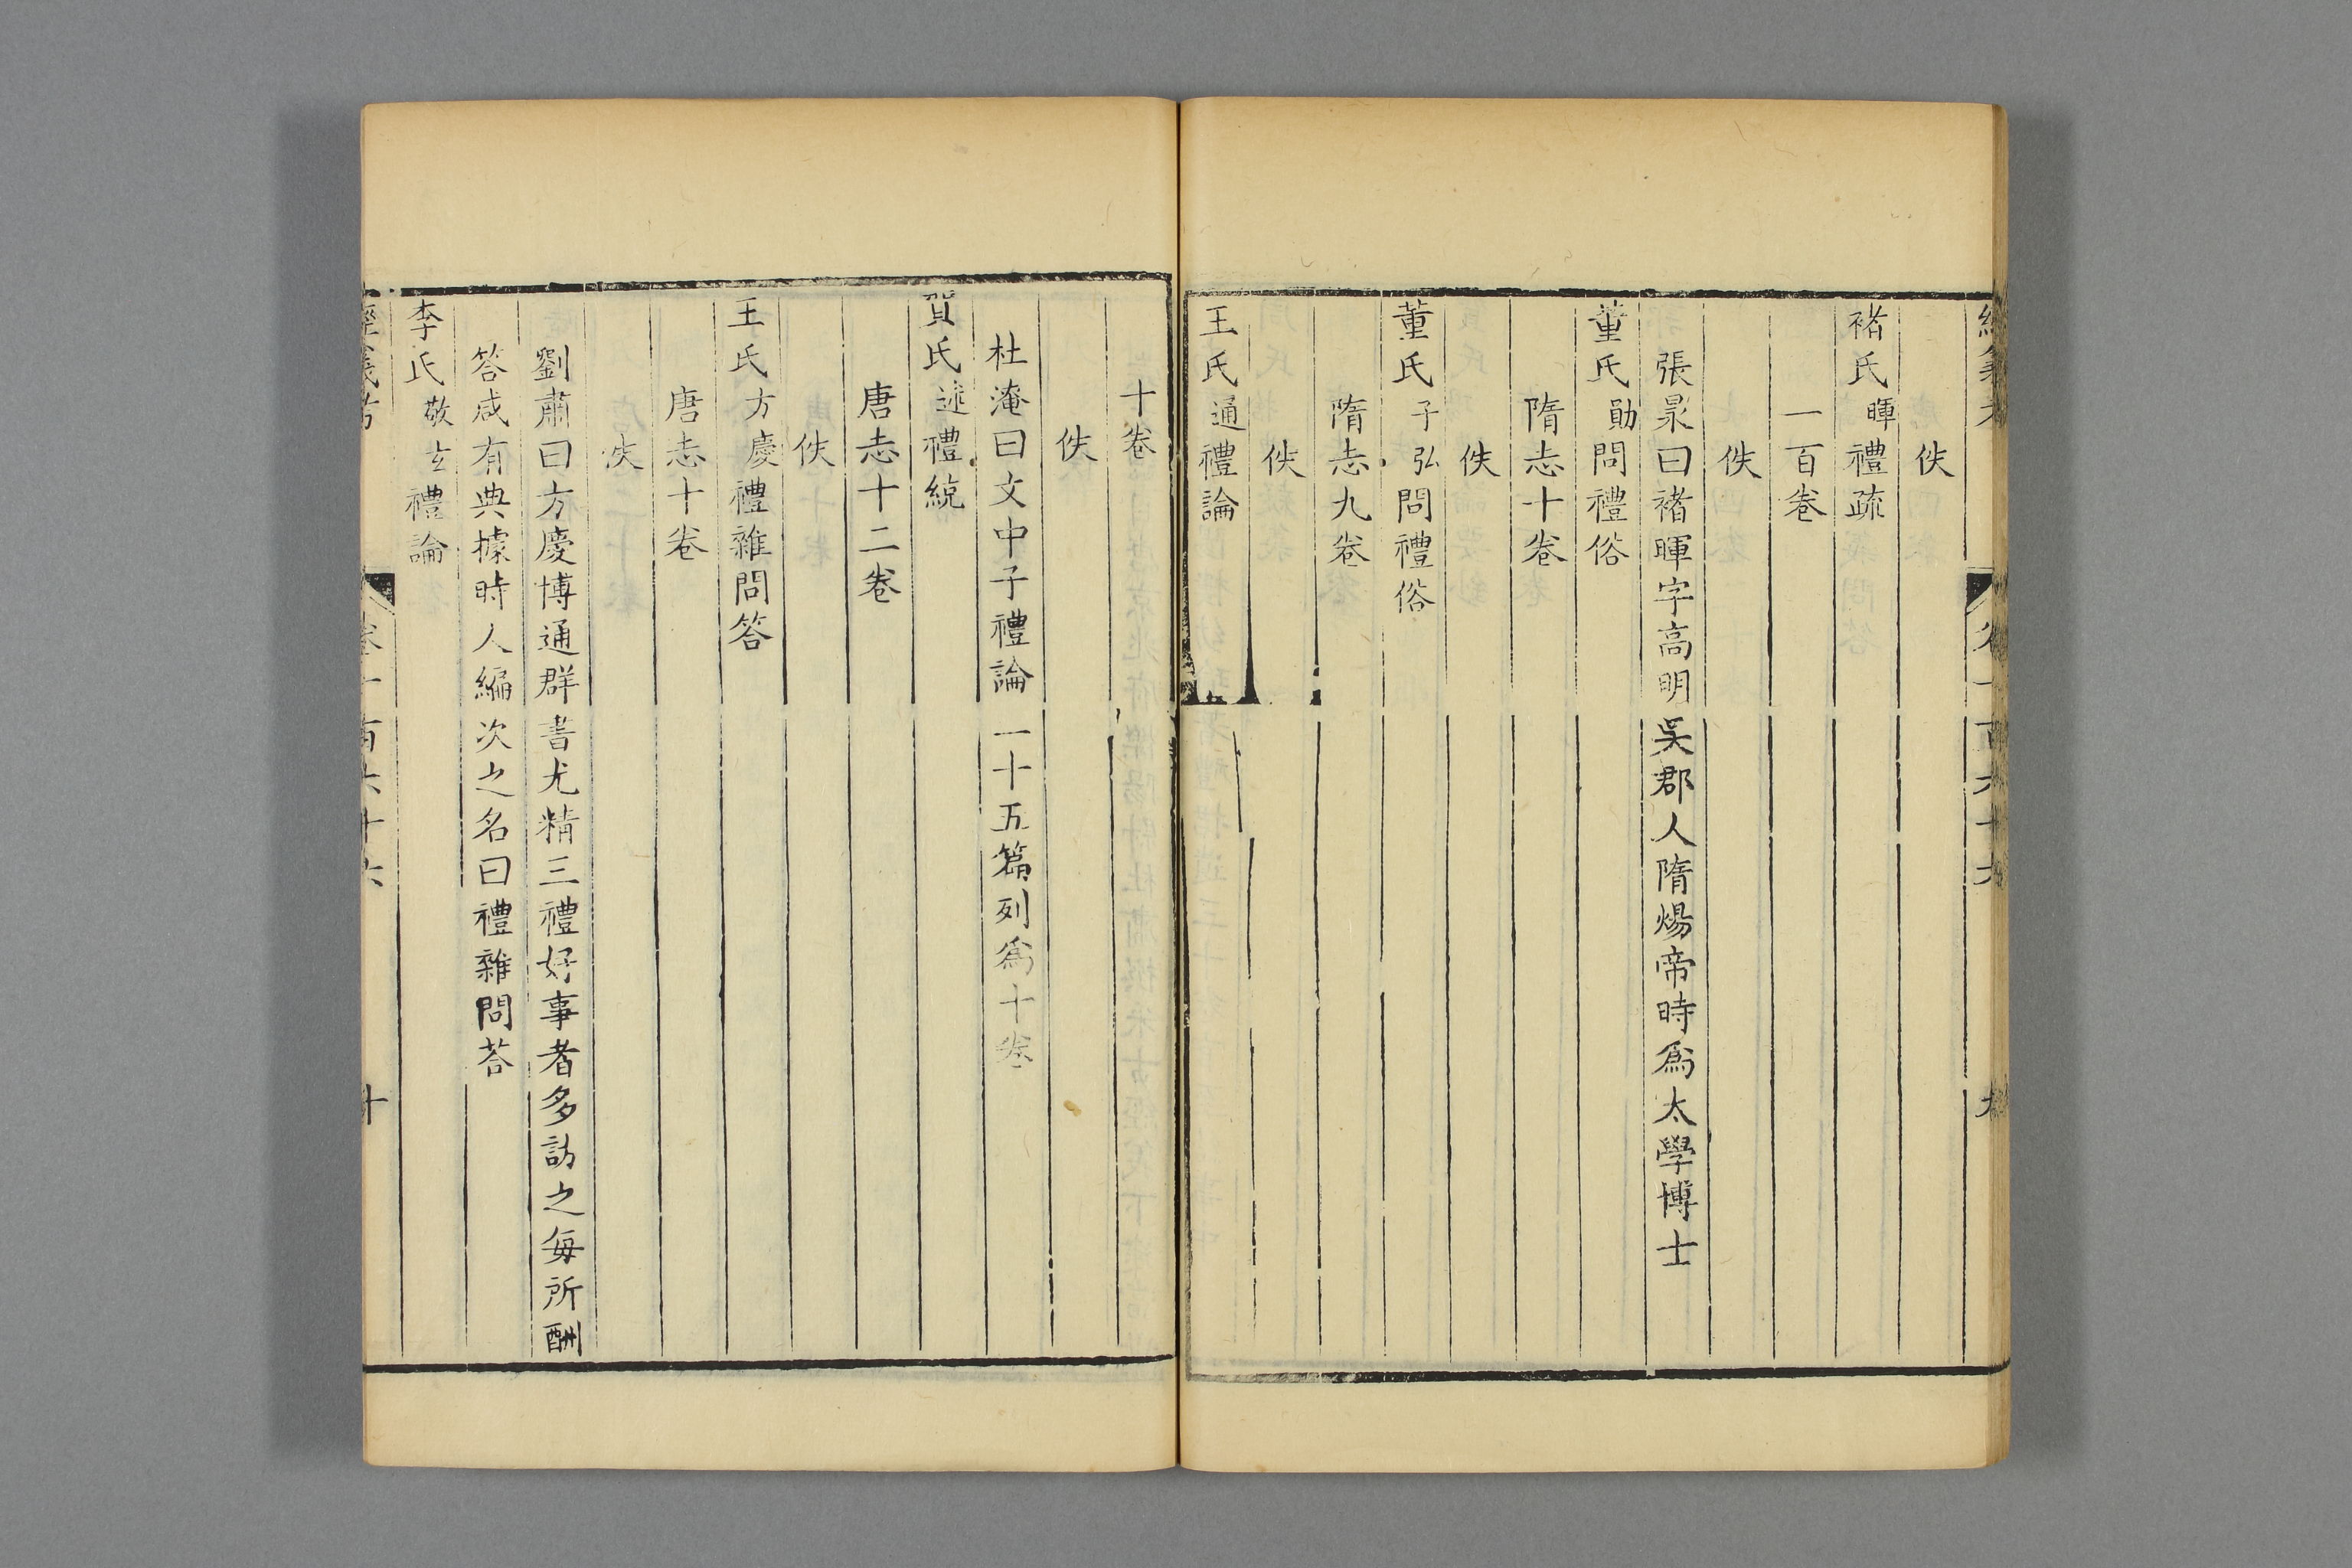 佚
褚氏暉禮疏
一百卷
佚
張㬅曰褚暉字高明吳郡人隋煬帝時爲太學博士
董氏勛問禮俗
隋志十卷
佚
董氏子弘問禮俗
隋志九卷
佚
王氏通禮論
十卷
佚
杜淹曰文中子禮論一十五篇列爲十卷
賀氏述禮統
唐志十二卷
佚
王氏方慶禮雜問答
唐志十卷
佚
劉肅曰方慶博通群書尤精三禮好事者多訪之每所酬
答咸有典據時人編次之名曰禮雜問荅
李氏敬玄禮論
經義考 卷一百六十六 十